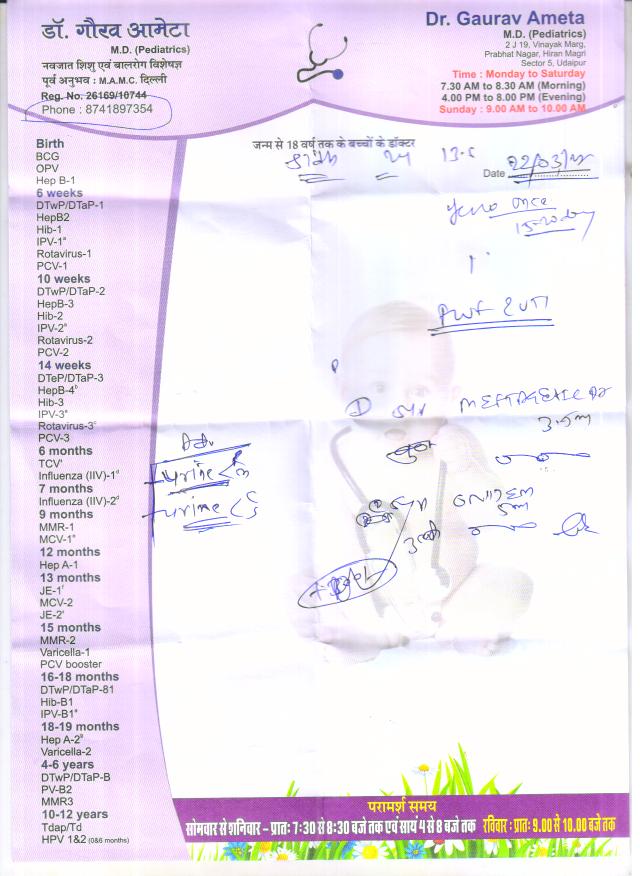 डॉ. गौरव आमेटा
M.D. (Pediatrics)
नवजात शिशु एवं बालरोग विशेषज्ञ
पूर्व अनुभव : M.A.M.C. दिल्ली
Reg. No. 26169/10744
Phone : 8741897354
Dr. Gaurav Ameta
M.D. (Pediatrics)
2 J 19, Vinayak Marg,
Prabhat Nagar, Hiran Magri
Sector 5, Udaipur
Time : Monday to Saturday
7.30 AM to 8.30 AM (Morning)
4.00 PM to 8.00 PM (Evening)
Sunday : 9.00 AM to 10.00 AM
जन्म से 18 वर्ष तक के बच्चों के डॉक्टर
Date
Birth
BCG
OPV
Hep B-1
6 weeks
DTwP/DTaP-1
HepB2
Hib-1
IPV-1ª
Rotavirus-1
PCV-1
10 weeks
DTwP/DTaP-2
HepB-3
Hib-2
IPV-2ª
Rotavirus-2
PCV-2
14 weeks
DTeP/DTaP-3
HepB-4ᵇ
Hib-3
IPV-3ª
Rotavirus-3ᶜ
PCV-3
6 months
TCV
Influenza (IIV)-1ᵈ
7 months
Influenza (IIV)-2ᵈ
9 months
MMR-1
MCV-1ᵉ
12 months
Hep A-1
13 months
JE-1ᶠ
MCV-2
JE-2ᶠ
15 months
MMR-2
Varicella-1
PCV booster
16-18 months
DTwP/DTaP-81
Hib-B1
IPV-B1ª
18-19 months
Hep A-2ᵍ
Varicella-2
4-6 years
DTwP/DTaP-B
PV-B2
MMR3
10-12 years
Tdap/Td
HPV 1&2 (0&6 months)
Adv.
urine
urine
once
परामर्श समय
सोमवार से शनिवार – प्रातः 7:30 से 8:30 बजे तक एवं सायं 4 से 8 बजे तक रविवार : प्रातः 9.00 से 10.00 बजे तक